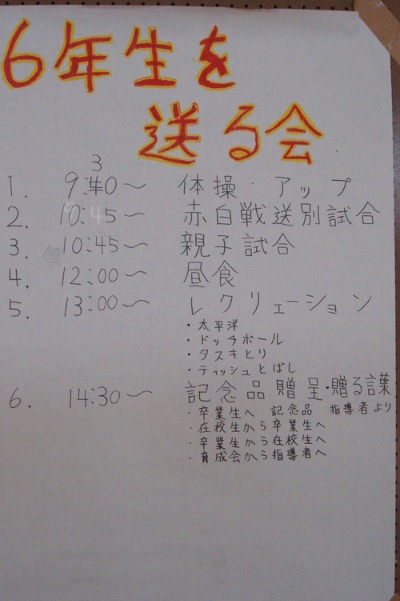 6年生を
送る会
1. 9:30〜 体操・アップ
2. 10:45〜 赤白戦送別試合
3. 10:45〜 親子試合
4. 12:00〜 昼食
5. 13:00〜 レクリェーション
・太平洋
・ドッチボール
・タスキとり
・ティッシュとばし
6. 14:30〜 記念品贈呈・贈る言葉
・卒業生へ 記念品 指導者より
・在校生から卒業生へ
・卒業生から在校生へ
・育成会から指導者へ